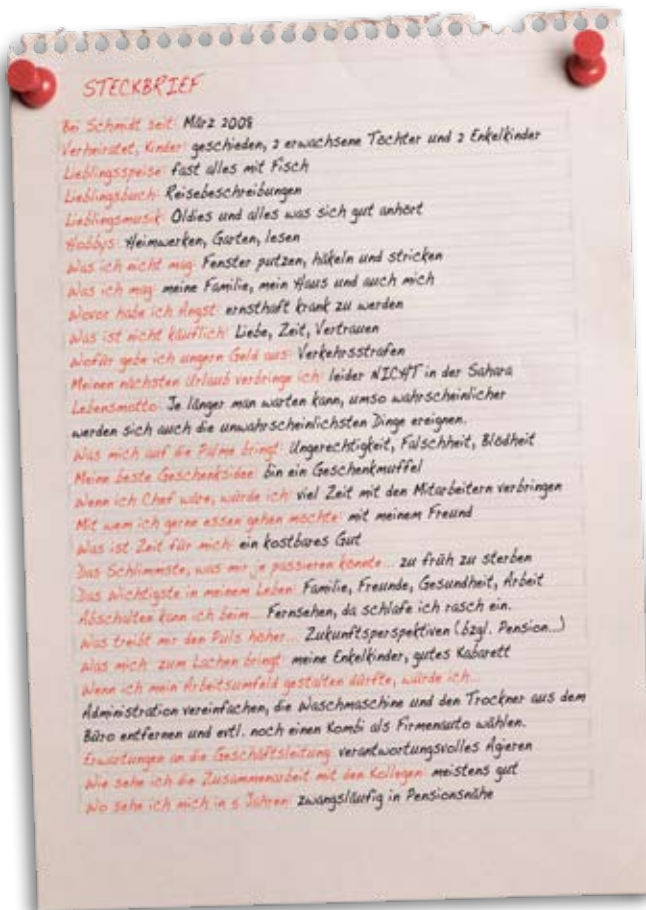 STECKBRIEF
Bei Schmidt seit: März 2008
Verheiratet, Kinder: geschieden, 2 erwachsene Töchter und 2 Enkelkinder
Lieblingsspeise: fast alles mit Fisch
Lieblingsbuch: Reisebeschreibungen
Lieblingsmusik: Oldies und alles was sich gut anhört
Hobbys: Heimwerken, Garten, lesen
Was ich nicht mag: Fenster putzen, häkeln und stricken
Was ich mag: meine Familie, mein Haus und auch mich
Wovor habe ich Angst: ernsthaft krank zu werden
Was ist nicht käuflich: Liebe, Zeit, Vertrauen
Wofür gebe ich ungern Geld aus: Verkehrsstrafen
Meinen nächsten Urlaub verbringe ich: leider NICHT in der Sahara
Lebensmotto: Je länger man warten kann, umso wahrscheinlicher
werden sich auch die unwahrscheinlichsten Dinge ereignen.
Was mich auf die Palme bringt: Ungerechtigkeit, Falschheit, Blödheit
Meine beste Geschenksidee: bin ein Geschenkmuffel
Wenn ich Chef wäre, würde ich: viel Zeit mit den Mitarbeitern verbringen
Mit wem ich gerne essen gehen möchte: mit meinem Freund
Was ist Zeit für mich: ein kostbares Gut
Das Schlimmste, was mir je passieren könnte... zu früh zu sterben
Das Wichtigste in meinem Leben: Familie, Freunde, Gesundheit, Arbeit
Abschalten kann ich beim... Fernsehen, da schlafe ich rasch ein.
Was treibt mir den Puls höher... Zukunftsperspektiven (bzgl. Pension...)
Was mich zum Lachen bringt: meine Enkelkinder, gutes Kabarett
Wenn ich mein Arbeitsumfeld gestalten dürfte, würde ich...
Administration vereinfachen, die Waschmaschine und den Trockner aus dem
Büro entfernen und evtl. noch einen Kombi als Firmenauto wählen.
Erwartungen an die Geschäftsleitung: verantwortungsvolles Agieren
Wie sehe ich die Zusammenarbeit mit den Kollegen: meistens gut
Wo sehe ich mich in 5 Jahren: zwangsläufig in Pensionsnähe